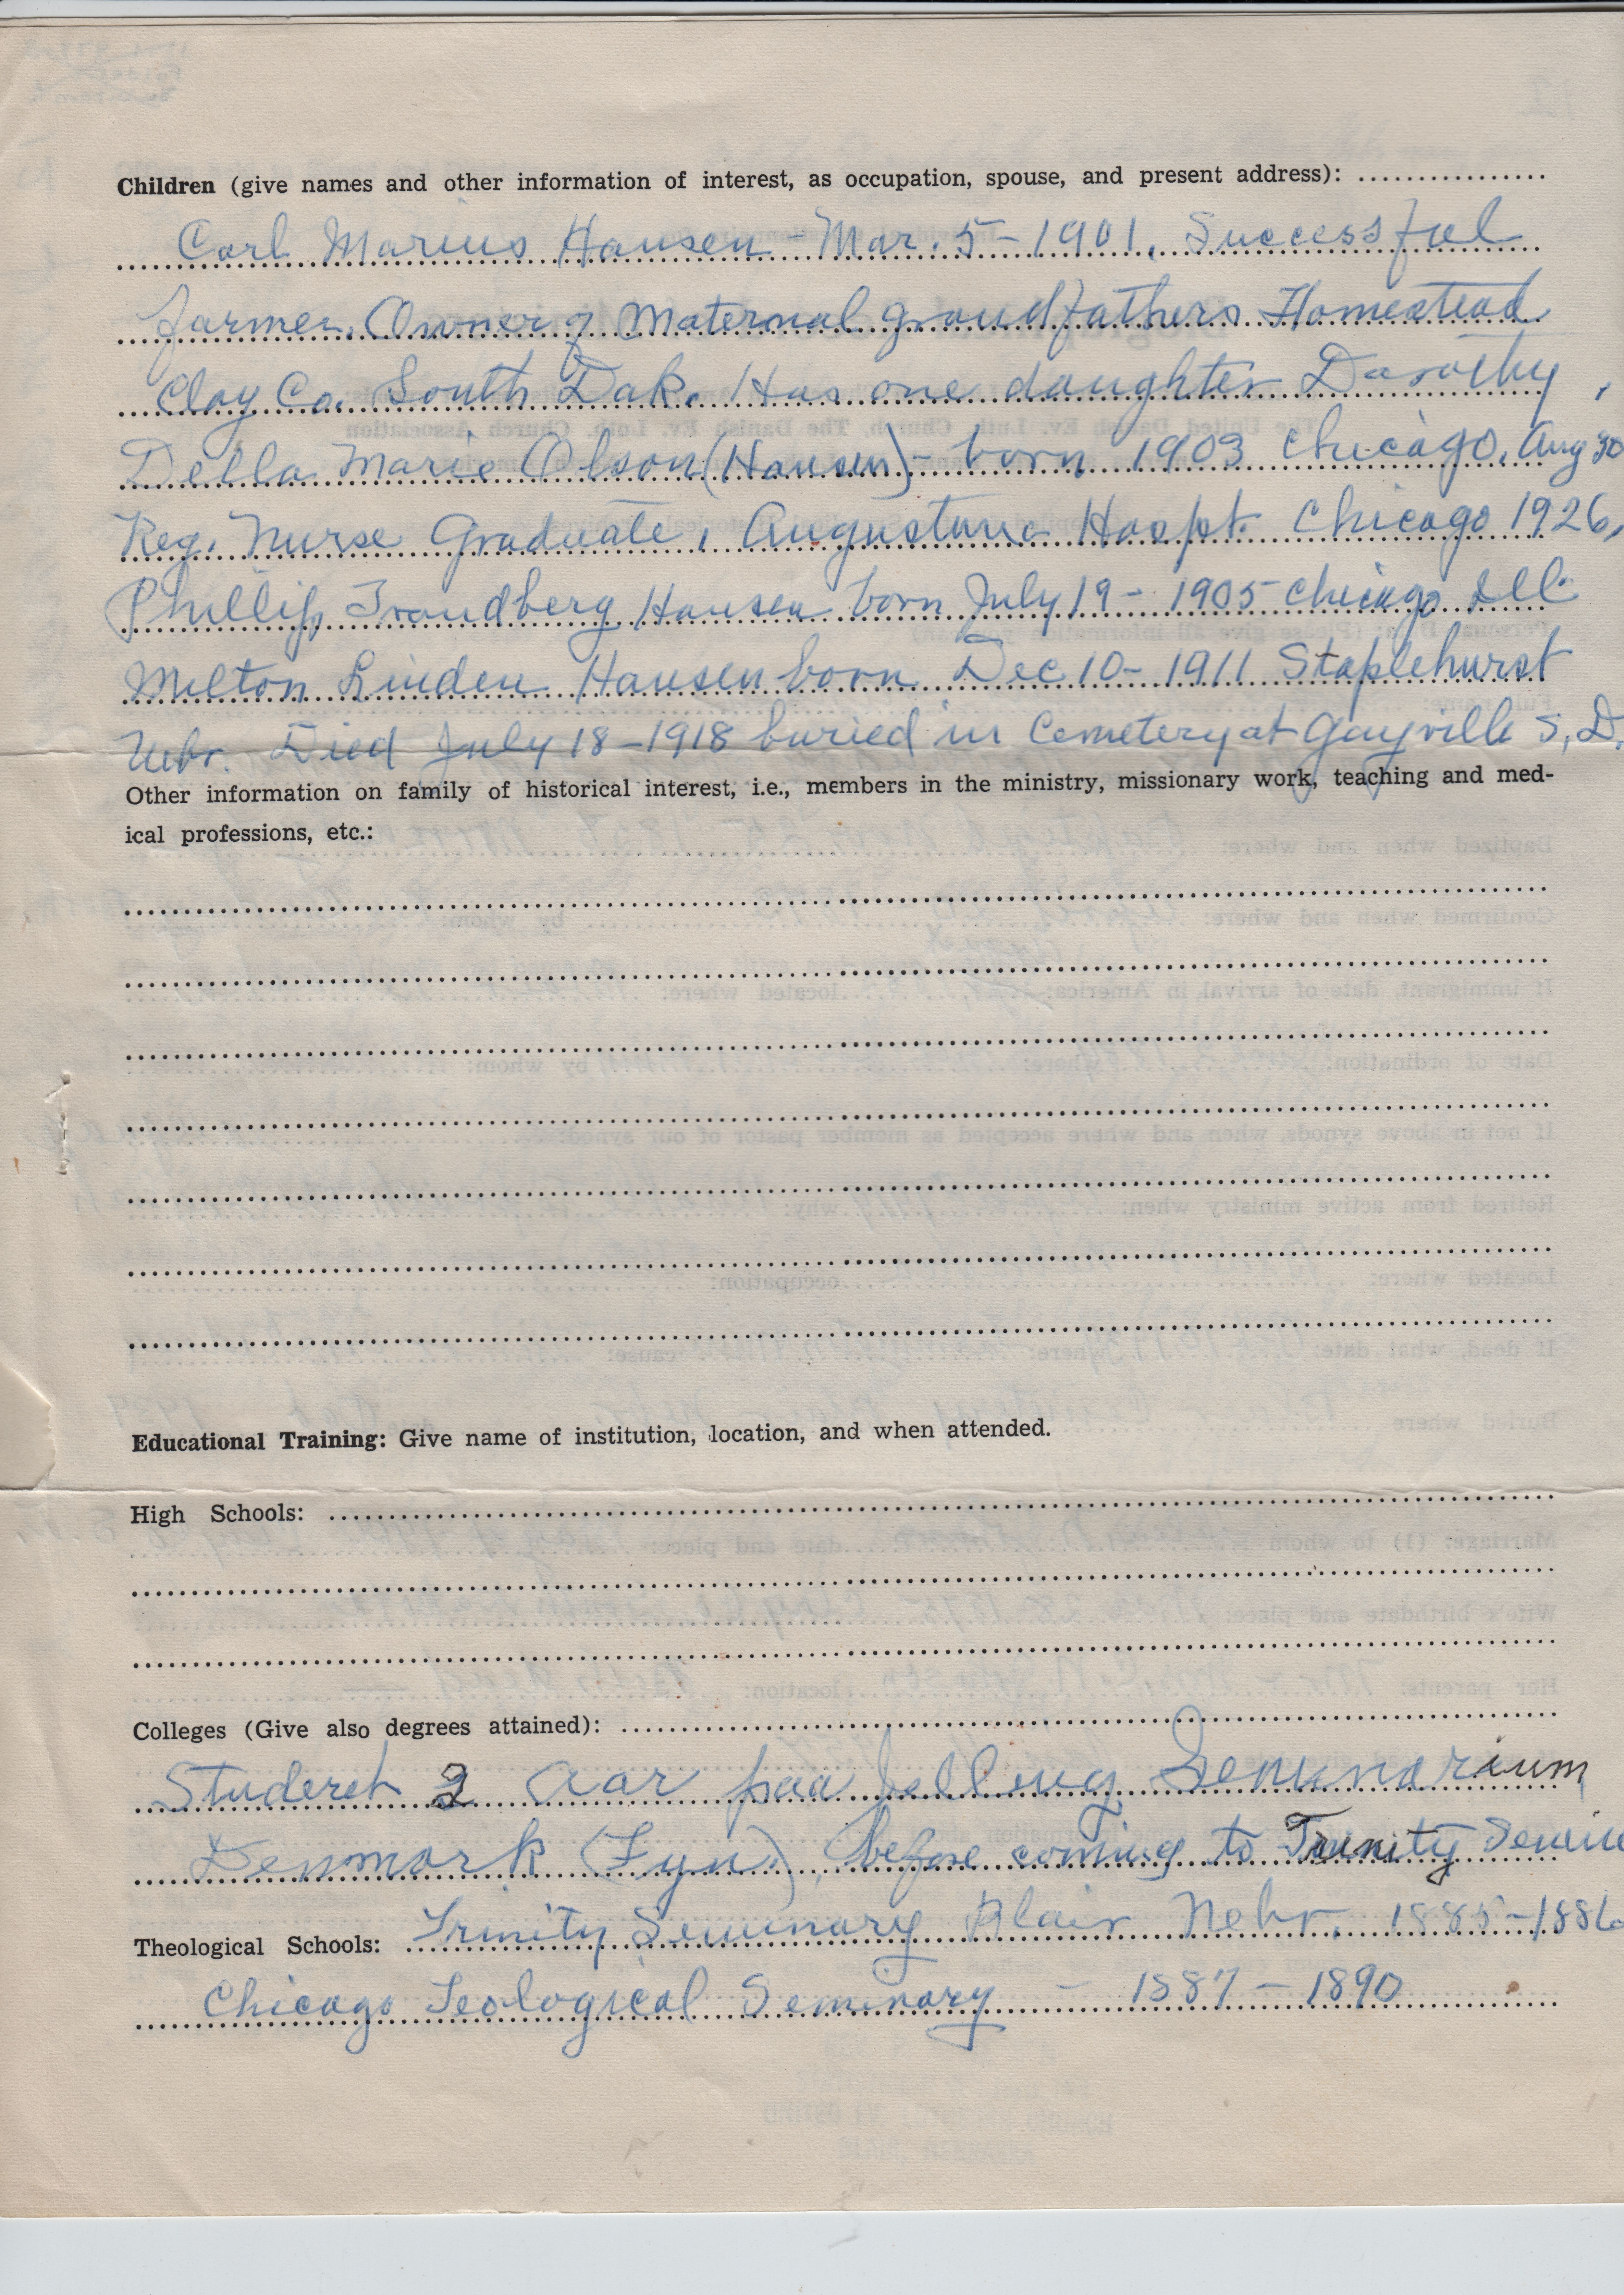 Children (give names and other information of interest, as occupation, spouse, and present address):
Carl Marius Hansen - Mar. 5 - 1901. Successful
farmer. Owner of Maternal grandfathers Homestead
Clay Co. South Dak. Has one daughter Dorothy,
Della Marie Olson (Hansen) - born 1903 Chicago, Aug 30
Reg. Nurse Graduate, Augustana Hospt. Chicago 1926,
Phillip Trandberg Hansen born July 19 - 1905 Chicago Ill.
Milton Linden Hansen born Dec 10 - 1911 Staplehurst
Nebr. Died July 18 - 1918 buried in Cemetery at Gayville S. D.
Other information on family of historical interest, i.e., members in the ministry, missionary work, teaching and med-
ical professions, etc.:
Educational Training: Give name of institution, location, and when attended.
High Schools:
Colleges (Give also degrees attained):
Studeret 2 Aar paa Jelling Seminarium
Denmark (Fyn), before coming to Trinity
Theological Schools: Trinity Seminary Blair Nebr. 1885-1886
Chicago Teological Seminary - 1887 - 1890